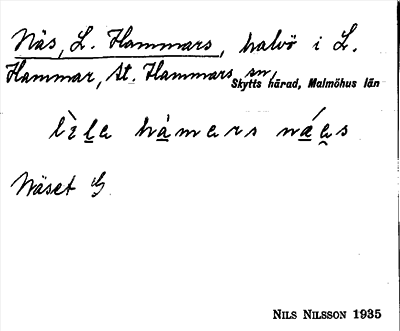 Näs, L. Hammars, halvö i L.
Hammar, St. Hammars sn,
Skytts härad, Malmöhus län
Näset G
NILS NILSSON 1935